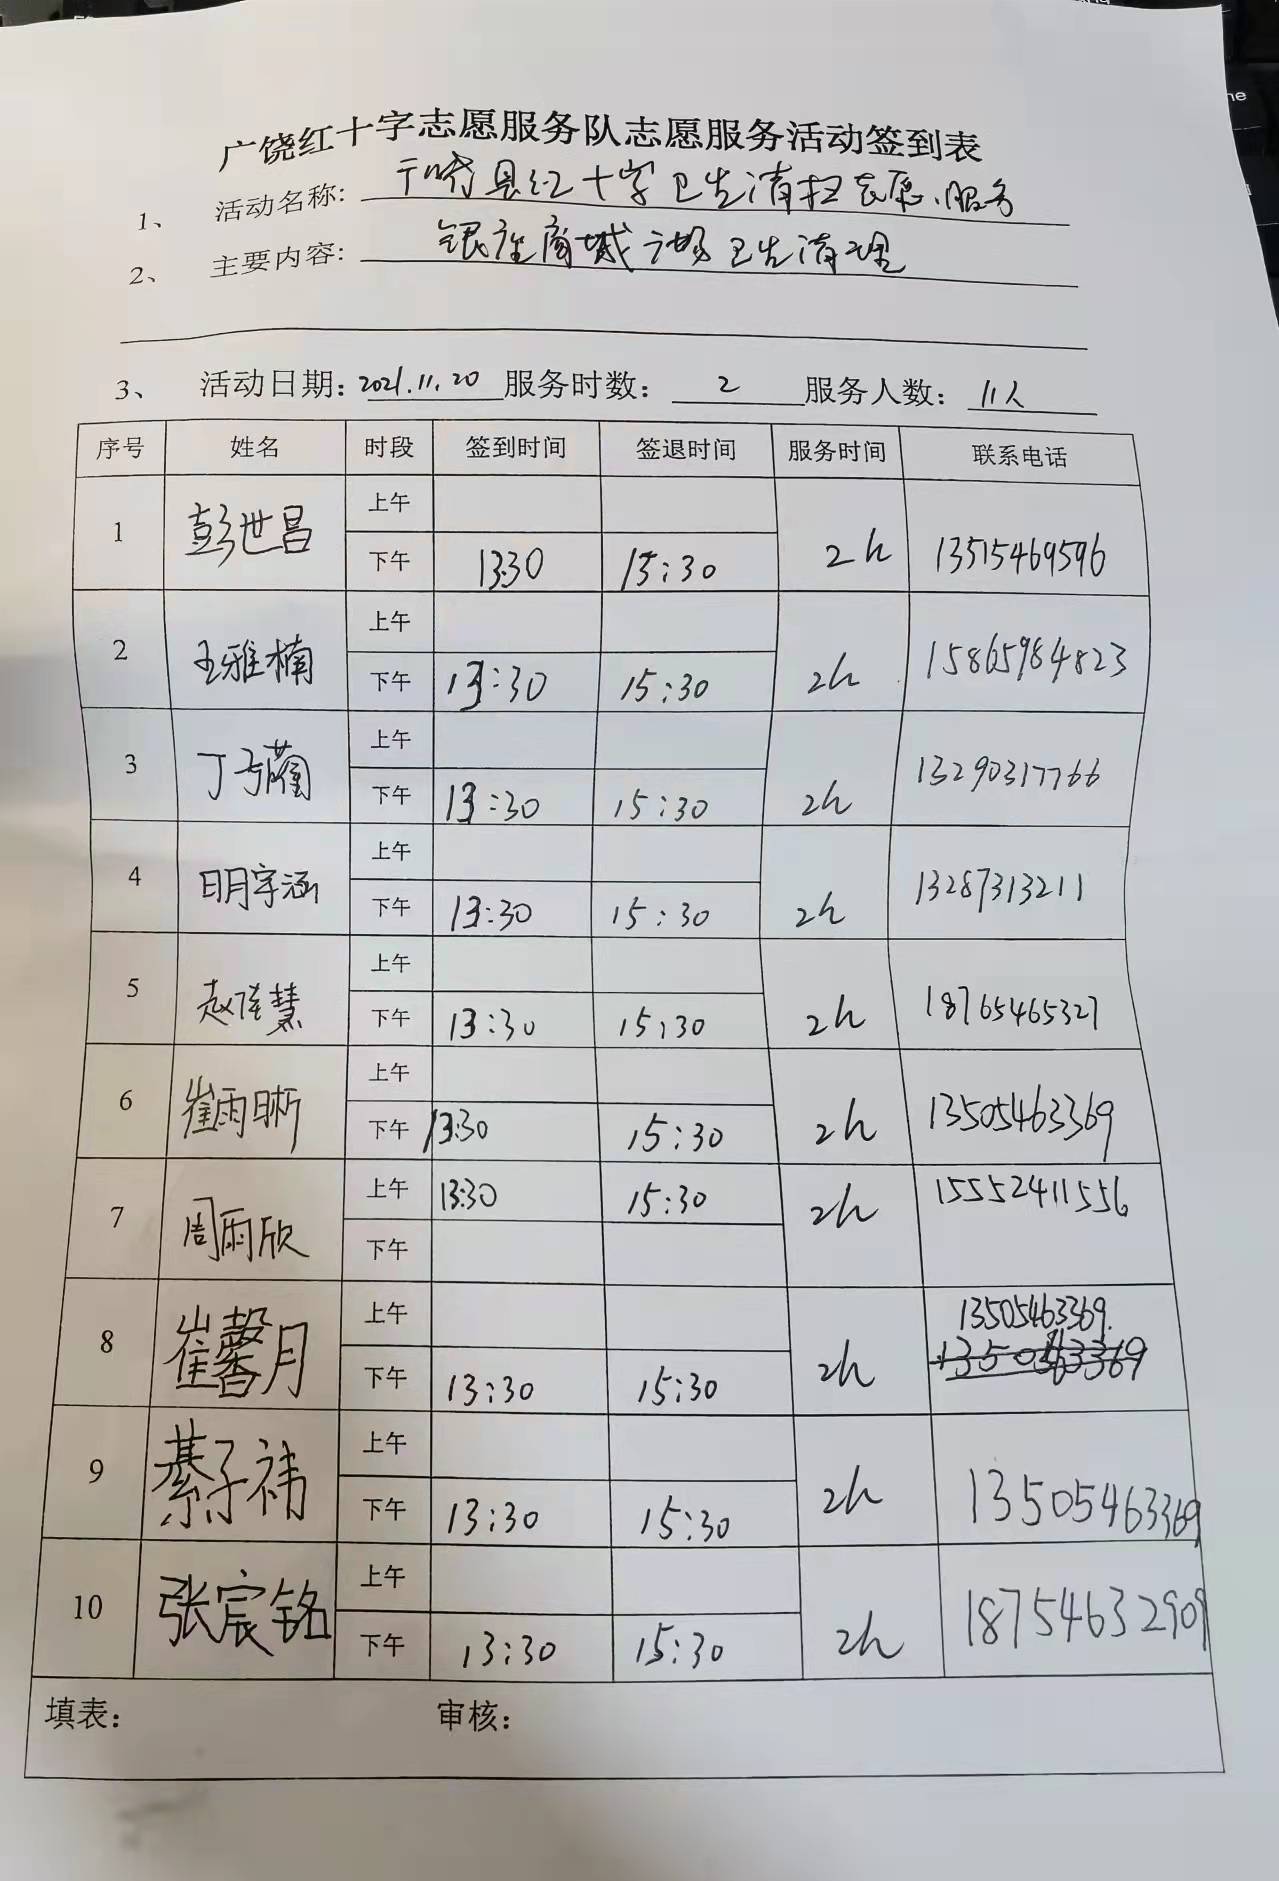 广饶红十字志愿服务队志愿服务活动签到表
1、 活动名称: 广饶县红十字卫生清扫志愿服务
2、 主要内容: 银座商城广场卫生清理
3、 活动日期: 2021.11.20 服务时数: 2 服务人数: 11人
序号 姓名 时段 签到时间 签退时间 服务时间 联系电话
1 彭世昌 上午
下午 13:30 15:30 2h 13515469596
2 王雅楠 上午
下午 13:30 15:30 2h 15865984823
3 丁 上午
下午 13:30 15:30 2h 13290317766
4 明宇涵 上午
下午 13:30 15:30 2h 13287313211
5 赵佳慧 上午
下午 13:30 15:30 2h 18765465327
6 崔雨晰 上午
下午 13:30 15:30 2h 13505463369
7 周雨欣 上午 13:30 15:30 2h 15552411556
下午
8 崔馨月 上午 13505463369.
下午 13:30 15:30 2h
9 綦子祎 上午
下午 13:30 15:30 2h 13505463369
10 张宸铭 上午
下午 13:30 15:30 2h 18754632909
填表: 审核: